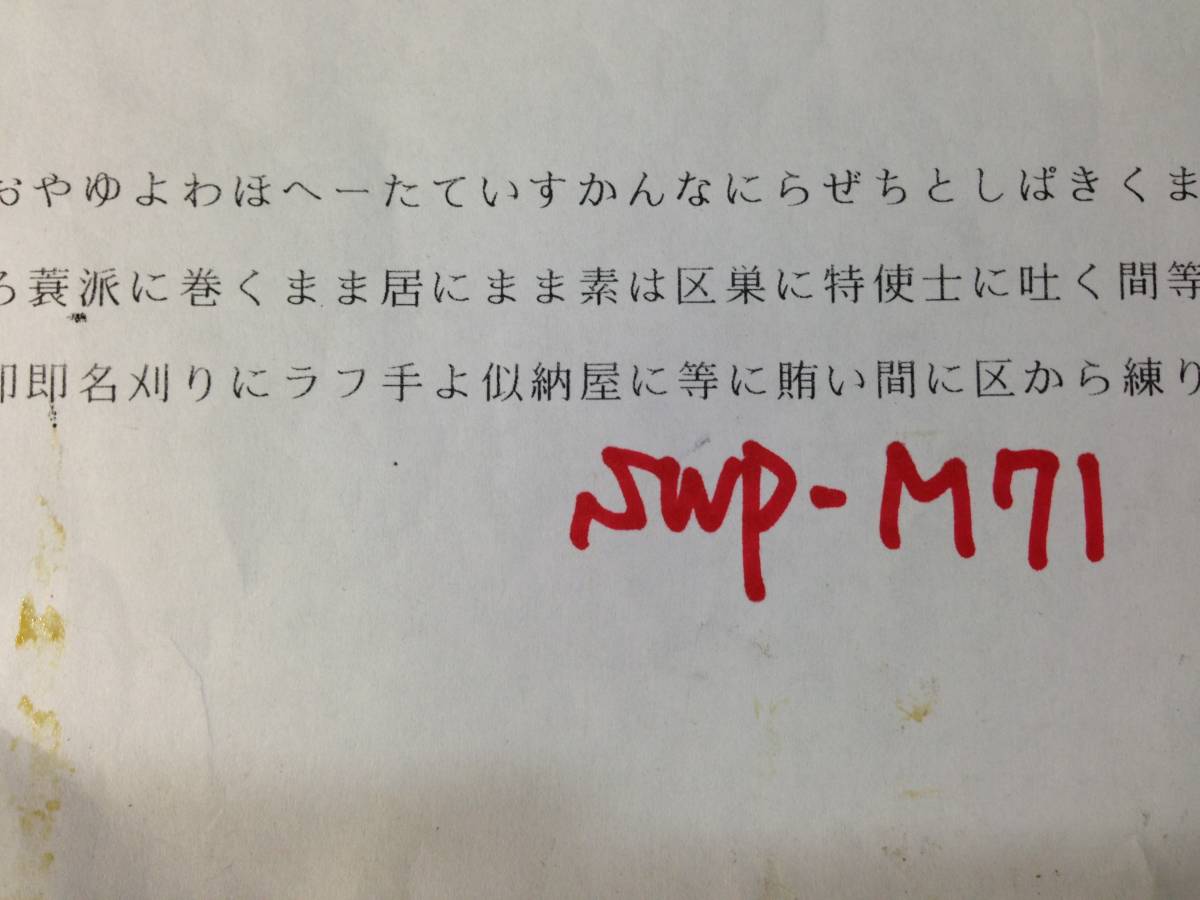 おやゆよわほへーたていすかんなにらぜちとしぱきくま
ろ蓑派に巻くまま居にまま素は区巣に特使士に吐く間等
即名刈りにラフ手よ似納屋に等に賄い間に区から練り
SWP-M71